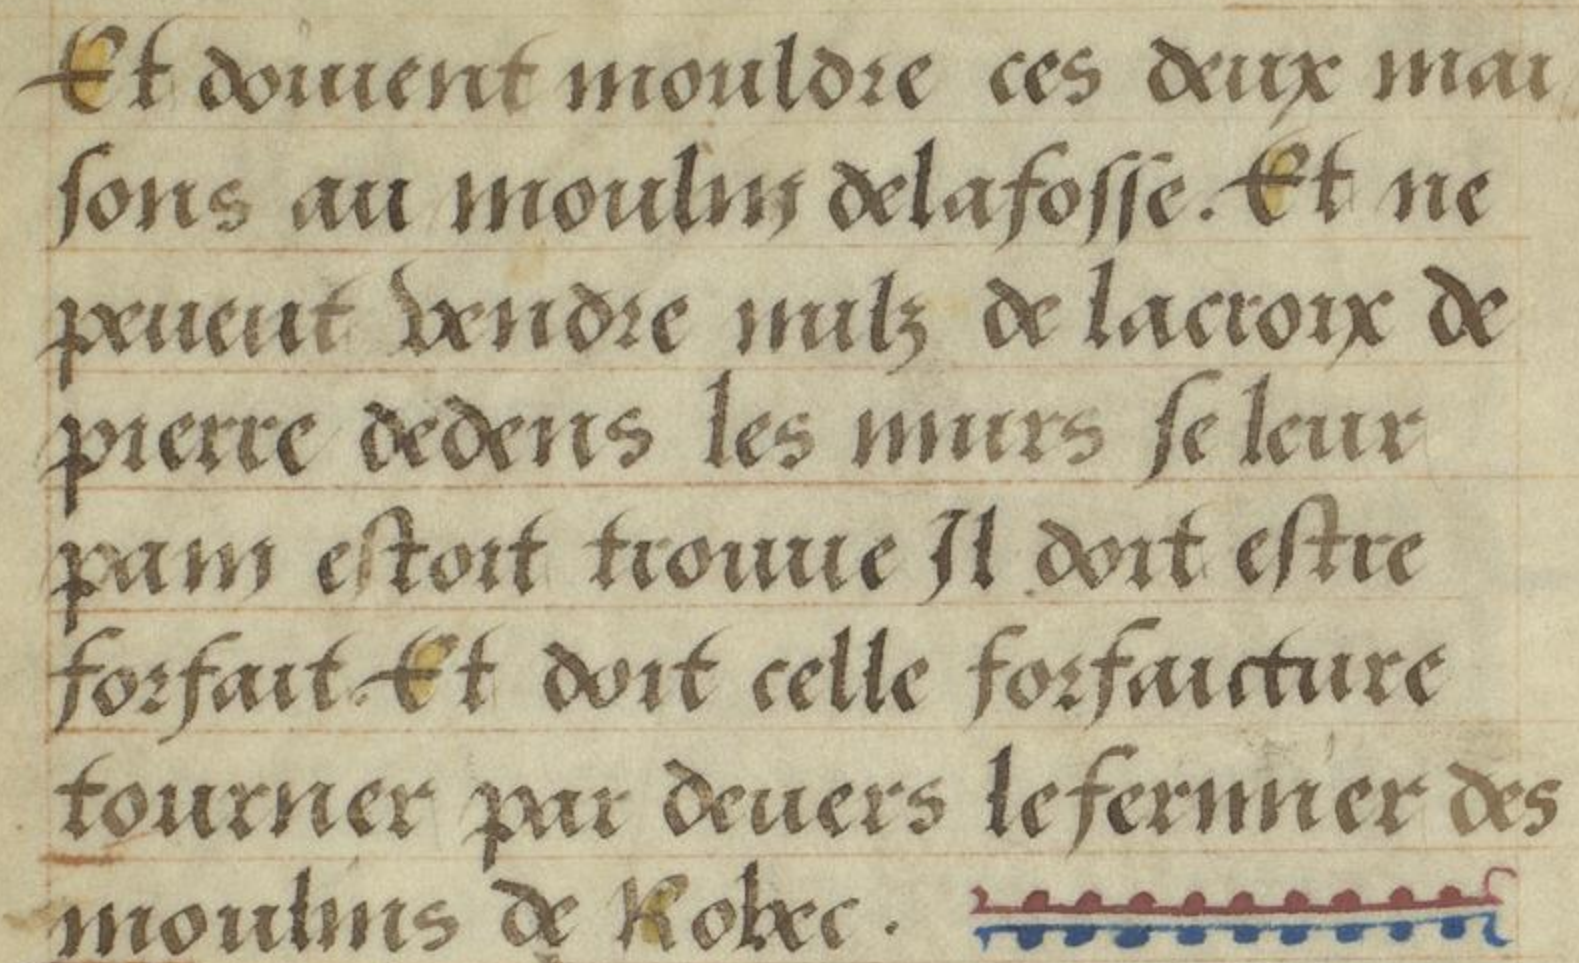 Et doiuent mouldre ces deux mai
sons au moulin delafosse. Et ne
peuent vendre nulz de lacroix de
pierre dedens les murs se leur
pain estoit trouue Il doit estre
forfait. Et doit celle forfaicture
tourner par deuers lefermier des
moulins de Robec.